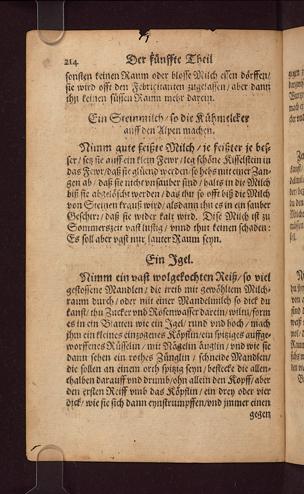 214 Der fünffte Theil
sonsten keinen Raum oder blosse Milch essen dörffen/
sie wird offt den Febricitanten zugelassen / aber dann
thu keinen süssen Raum mehr darein.
Ein Steinmilch / so die Kühmelcker
auff den Alpen machen.
Nimm gute feißte Milch / je feißter je bes-
ser / setz sie auff ein klein Fewr / leg schöne Kißlstein in
das Fewr / daß sie glüend werden / so hebs mit einer Zan-
gen ab / daß sie nicht unsauber sind / halts in die Milch
biß sie abgelöscht werden / das thu so offt biß die Milch
von Steinen kraus wird / alsdann thu es in ein sauber
Geschirr / daß sie wider kalt wird. Dise Milch ist zu
Sommerszeit vast lustig / unnd thut keinen schaden:
Es soll aber vast nur lauter Raum seyn.
Ein Igel.
Nimm ein vast wolgekochten Reiß / so viel
gestossene Mandlen / die treib mit gewöhltem Milch-
raum durch / oder mit einer Mandelmilch so dick du
kanst / thu Zucker vnd Rosenwasser darein / form
es in ein Blatten wie ein Igel / rund vnd hoch / mach
jhm ein kleines einzogenes Köpflin / ein spitziges auffge-
worffenes Rüsselin / mit Nägelin äuglin / vnd wie sie
dann sehen ein rothes Zünglin / schneide Mandlen /
die sollen an einem orth spitzig seyn / bestecke die allen-
thalben darauff vnd drumb / ohn allein den Kopff / aber
den ersten Reiff vmb das Köpflin / ein drey oder vier
dick / wie sie sich dann eynstrumpffen / vnd jmmer einen
gegen